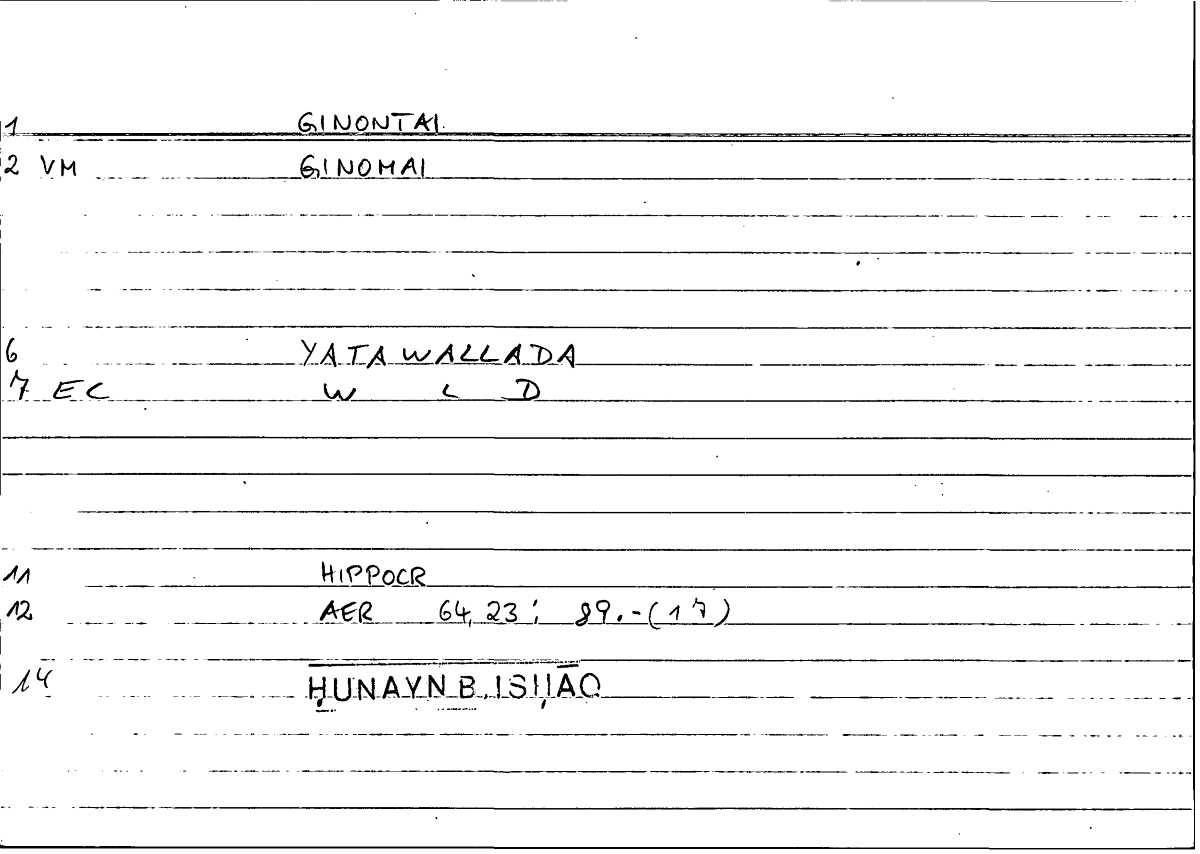 1 GINONTAI
2 VM GINOMAI
6 YATAWALLADA
7 EC W L D
11 HIPPOCR
12 AER 64,23; 89.-(17)
14 ḤUNAYN B. ISḤĀQ